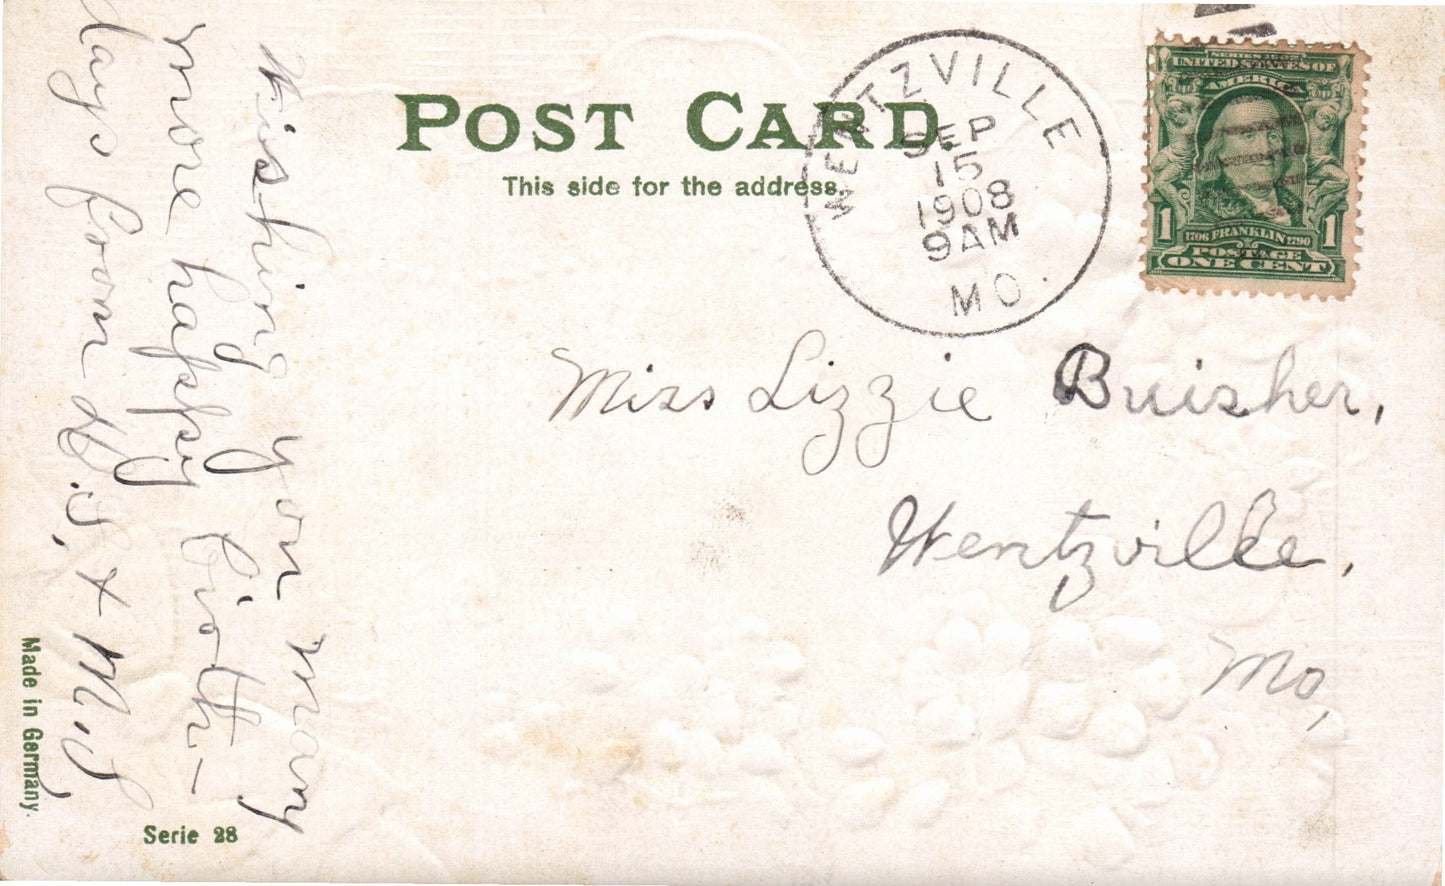 POST CARD
This side for the address.
WENTZVILLE
SEP
15
1908
9 AM
MO.
SERIES 1902
UNITED STATES OF
AMERICA
1 1706 FRANKLIN 1790 1
POSTAGE
ONE CENT
Miss Lizzie Buisher,
Wentzville,
Mo,
Wishing you many
more happy birth-
days from H.S, + M.S,
Made in Germany.
Serie 28